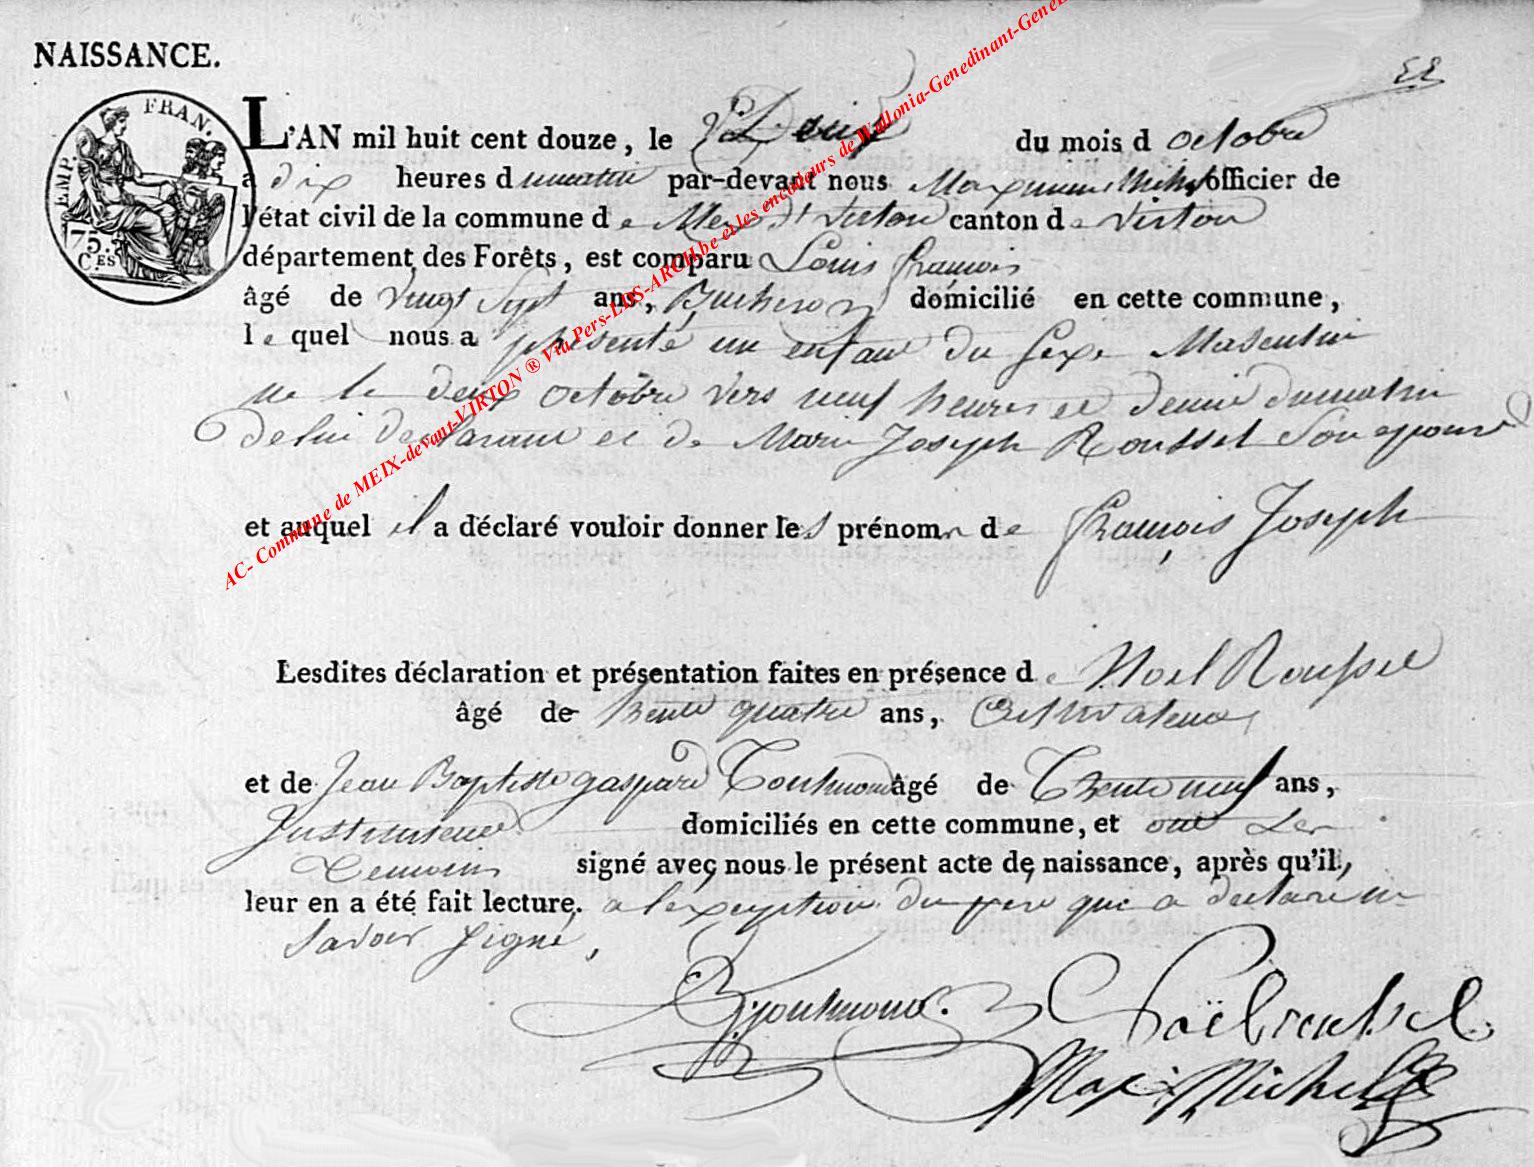 NAISSANCE.
22
EMP. FRAN.
75. C.ES
L'AN mil huit cent douze, le deux du mois d octobre
a dix heures du matin par-devant nous Maximin Michel officier de
l'état civil de la commune de Meix dt virton canton de virton
département des Forêts, est comparu Louis françois
âgé de vingt Sept ans, Bucheron domicilié en cette commune,
le quel nous a présenté un enfant du Sexe Masculin
né le deux octobre vers neuf heures et demie dumatin
de lui declarant et de Marie Joseph Roussel Son epouse
et auquel il a déclaré vouloir donner les prénoms de françois Joseph
Lesdites déclaration et présentation faites en présence de Noel Roussel
âgé de trente quatre ans, Cultivateur
et de Jean Baptiste gaspard âgé de Trente neuf ans,
Instituteur domiciliés en cette commune, et ont Les
temoins signé avec nous le présent acte de naissance, après qu'il
leur en a été fait lecture, a lexception du pere que a declare ne
Savoir Signé,
Noël roussel
Max: Michel
AC- Commune de MEIX-devant-VIRTON ® Via Pers-LDS-ARCH.be et les encodeurs de Wallonia-Genedinant-Gene